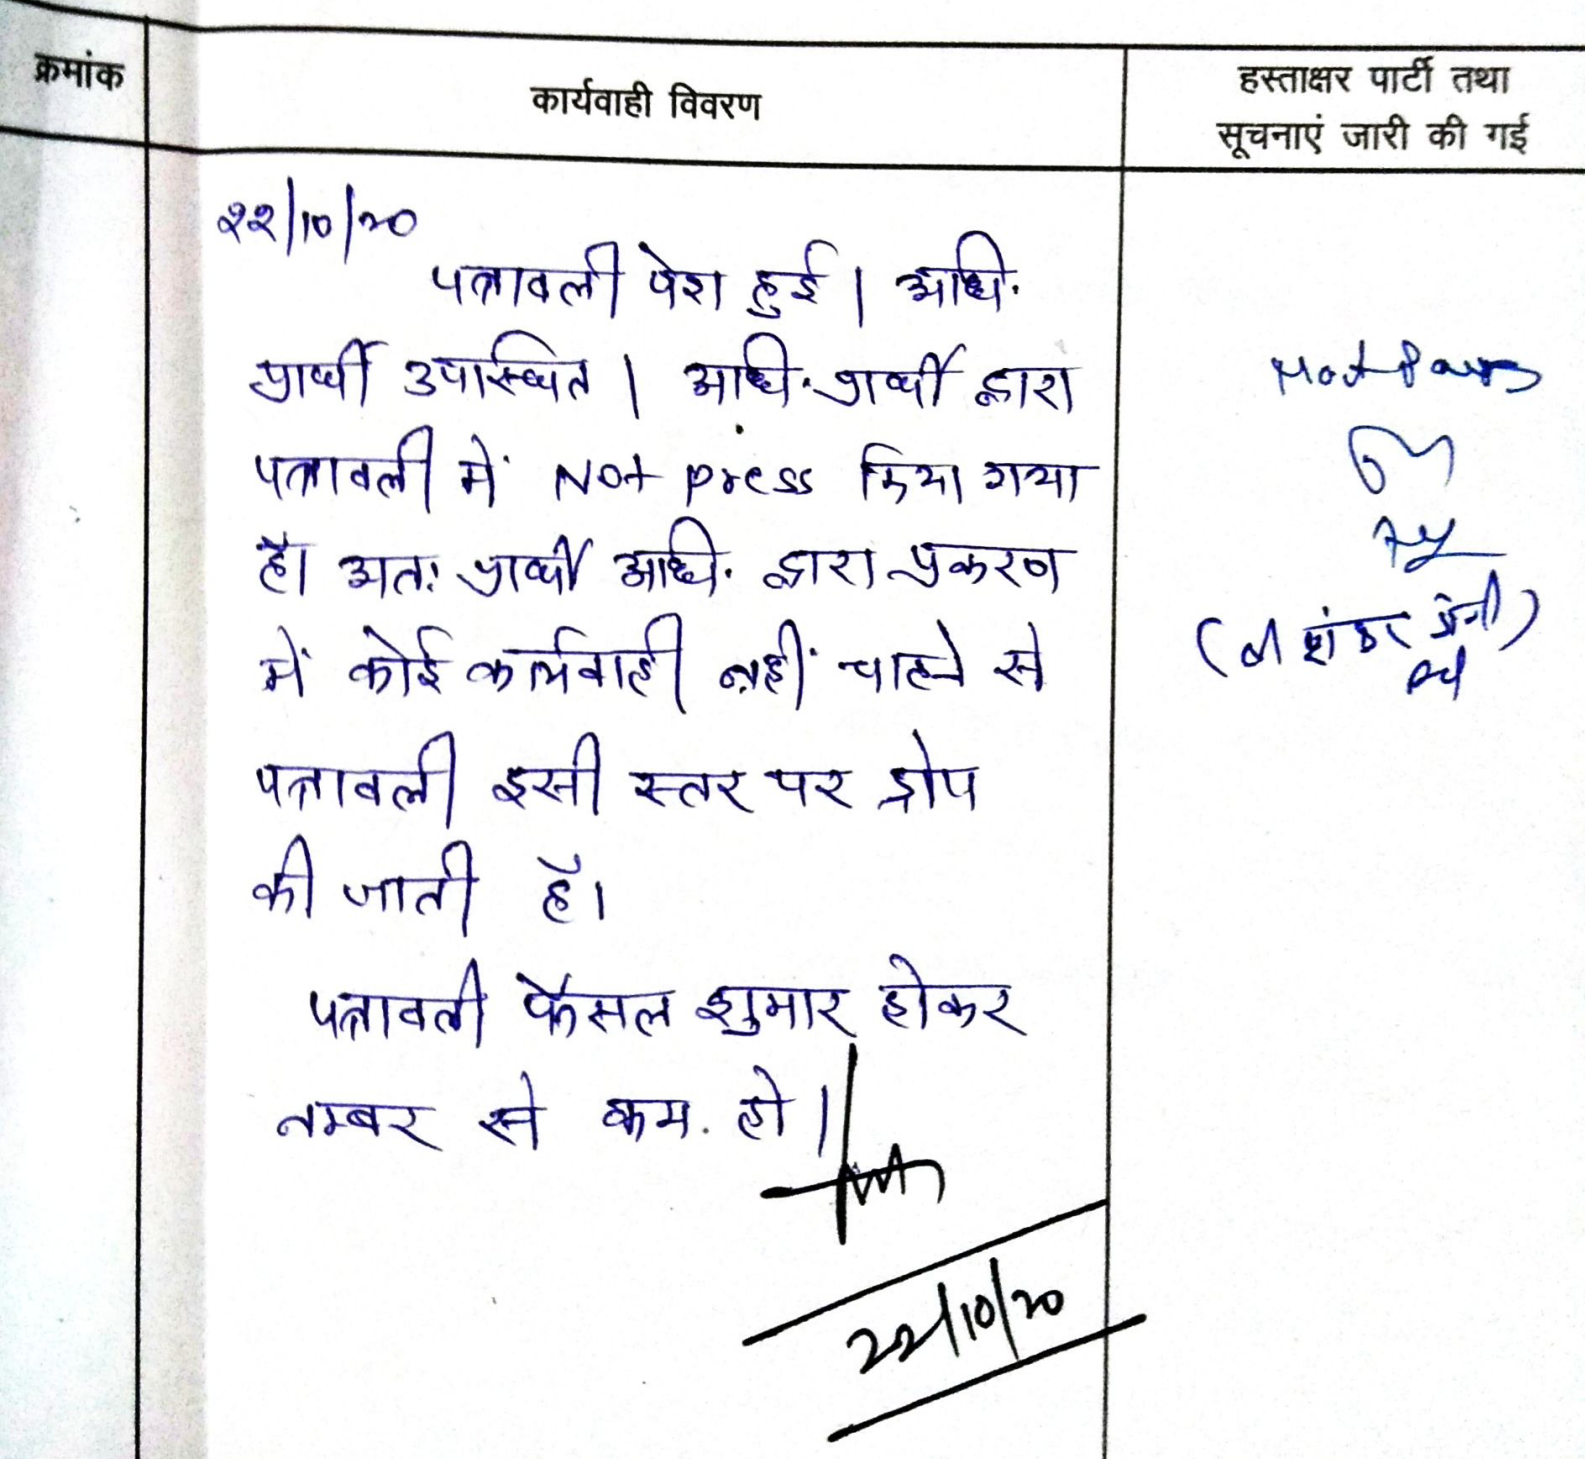 क्रमांक
कार्यवाही विवरण
हस्ताक्षर पार्टी तथा
सूचनाएं जारी की गई
22/10/20
पत्रावली पेश हुई। अधि.
प्रार्थी उपस्थित। अधि. प्रार्थी द्वारा
पत्रावली में Not press किया गया
है। अतः प्रार्थी अधि. द्वारा प्रकरण
में कोई कार्यवाही नहीं चाहने से
पत्रावली इसी स्तर पर ड्रोप
की जाती है।
पत्रावली फैसल शुमार होकर
नम्बर से कम. हो।
22/10/20